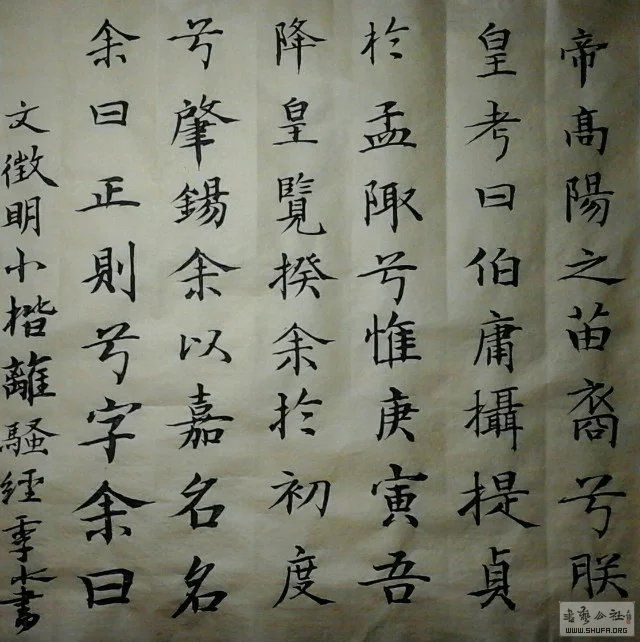 帝高陽之苗裔兮朕
皇考曰伯庸攝提貞
於孟陬兮惟庚寅吾
降皇覽揆余於初度
兮肇錫余以嘉名名
余曰正則兮字余曰
文徵明小楷離騷經季水書
書藝公社
WWW.SHUFA.ORG